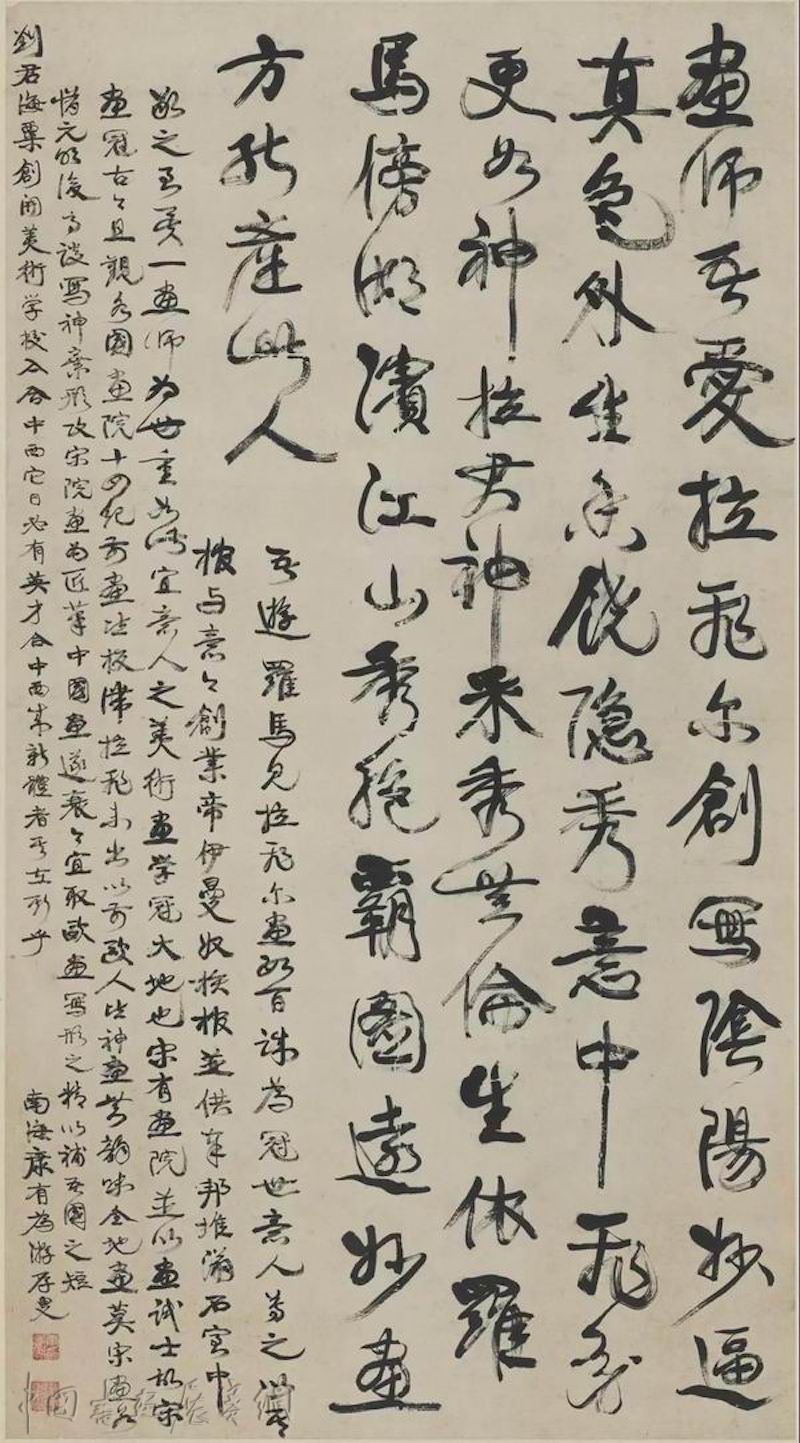 畫師吾愛拉飛尔創寫陰陽妙逼
真色外生香饶隐秀意中飛動
更如神拉君神采秀無倫生依羅
馬傍湖濱江山秀絕霸圖遠妙畫
方能產此人
吾遊羅馬見拉飛尔畫數百誄為冠世意人尊之以其
棺与意之創業帝伊曼奴核棺並供奉邦堆滿石室中
敬之至矣一畫師为世重如此宜意人之美術畫学冠大地也宋有畫院並以畫試士故宋
畫冠古今且觀各國畫院十四紀前畫法板滯拉飛未出以前歐人皆神畫無韻味全地畫莫宋畫若
惜元明後高談寫神棄形改宋院畫為匠筆中國畫遂衰今宜取歐畫寫形之精以補吾國之短
劉君海粟創開美術学校入合中西它日必有英才合中西成新體者其在斯乎
南海康有為游存叟